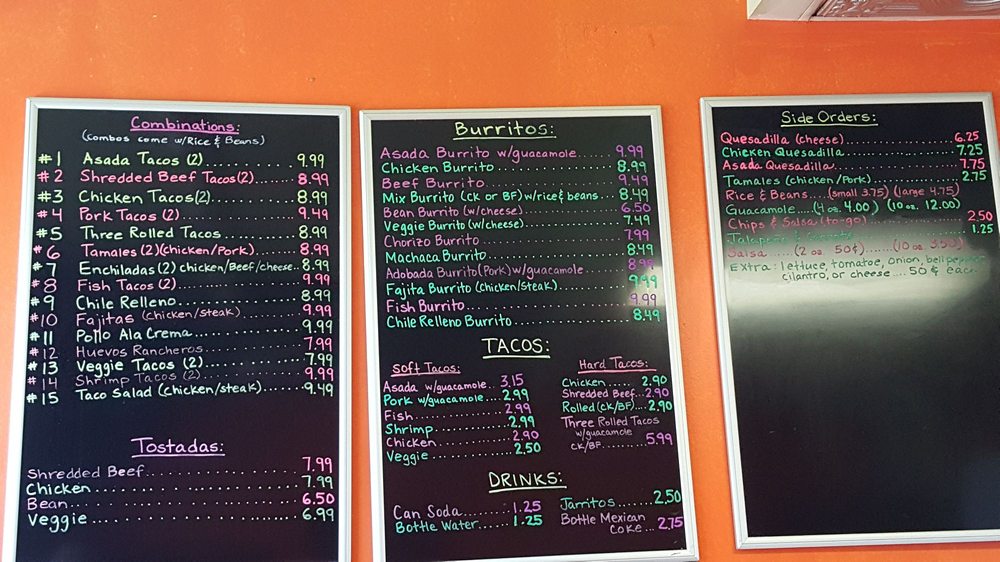 Combinations:
(Combos come w/Rice & Beans)
#1 Asada Tacos (2)........ 9.99
#2 Shredded Beef Tacos (2)... 8.99
#3 Chicken Tacos (2)........ 8.99
#4 Pork Tacos (2)........ 9.49
#5 Three Rolled Tacos........ 8.99
#6 Tamales (2)(chicken/Pork)... 8.99
#7 Enchiladas (2) chicken/Beef/cheese.. 8.99
#8 Fish Tacos (2)........ 9.99
#9 Chile Relleno........ 8.99
#10 Fajitas (chicken/steak)... 9.99
#11 Pollo Ala Crema........ 9.99
#12 Huevos Rancheros........ 7.99
#13 Veggie Tacos (2)........ 7.99
#14 Shrimp Tacos (2)........ 9.99
#15 Taco Salad (chicken/steak)... 9.49
Tostadas:
Shredded Beef........ 7.99
Chicken........ 7.99
Bean........ 6.50
Veggie........ 6.99
Burritos:
Asada Burrito w/guacamole..... 9.99
Chicken Burrito........ 8.99
Beef Burrito........ 9.49
Mix Burrito (CK or BF) w/rice & beans... 8.49
Bean Burrito (w/cheese)........ 6.50
Veggie Burrito (w/cheese)........ 7.49
Chorizo Burrito........ 7.99
Machaca Burrito........ 8.49
Adobada Burrito (Pork) w/guacamole..... 8.99
Fajita Burrito (Chicken/Steak)..... 9.99
Fish Burrito........ 9.99
Chile Relleno Burrito........ 8.49
TACOS:
Soft Tacos:
Asada w/guacamole.. 3.15
Pork w/guacamole... 2.99
Fish........ 2.99
Shrimp........ 2.99
Chicken........ 2.90
Veggie........ 2.50
Hard Tacos:
Chicken...... 2.90
Shredded Beef... 2.90
Rolled (CK/BF).... 2.90
Three Rolled Tacos
w/guacamole
CK/BF........ 5.99
DRINKS:
Can Soda........ 1.25
Bottle Water....... 1.25
Jarritos........ 2.50
Bottle Mexican
Coke... 2.75
Side Orders:
Quesadilla (cheese)........ 6.25
Chicken Quesadilla........ 7.25
Asada Quesadilla........ 7.75
Tamales (chicken/Pork)........ 2.75
Rice & Beans....(small 3.75) (large 4.75)
Guacamole....(4 oz. 4.00) (10 oz. 12.00)
Chips & Salsa (to-go)........ 2.50
Jalapeño & 1.25
Salsa ....(2 oz. 50¢)......(10 oz 3.50)
Extra: lettuce, tomatoe, onion, bell pepper,
cilantro, or cheese.... 50¢ each